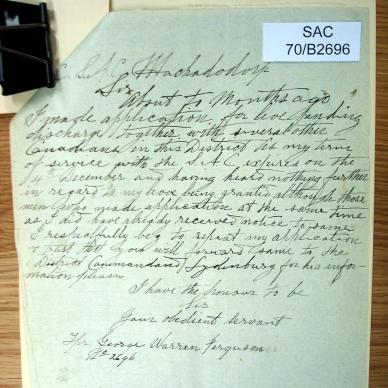 SAC
70/B2696
C. S.A.C. Machadodorp
Sir
About to Months ago
I made application for leave pending
discharge together with several other
Canadians in this District as my term
of service with the S.A.C. expires on the
14th December and having heard nothing further
in regard to my leave being granted although those
men who made application at the same time
as I did have already received notice to same
I respectfully beg to repeat my application
trust that you will forward same to the
District Commandant Lydenburg for his infor-
mation please
I have the honour to be
Sir
Your obedient servant
Tpr George Warren Ferguson
No 2696